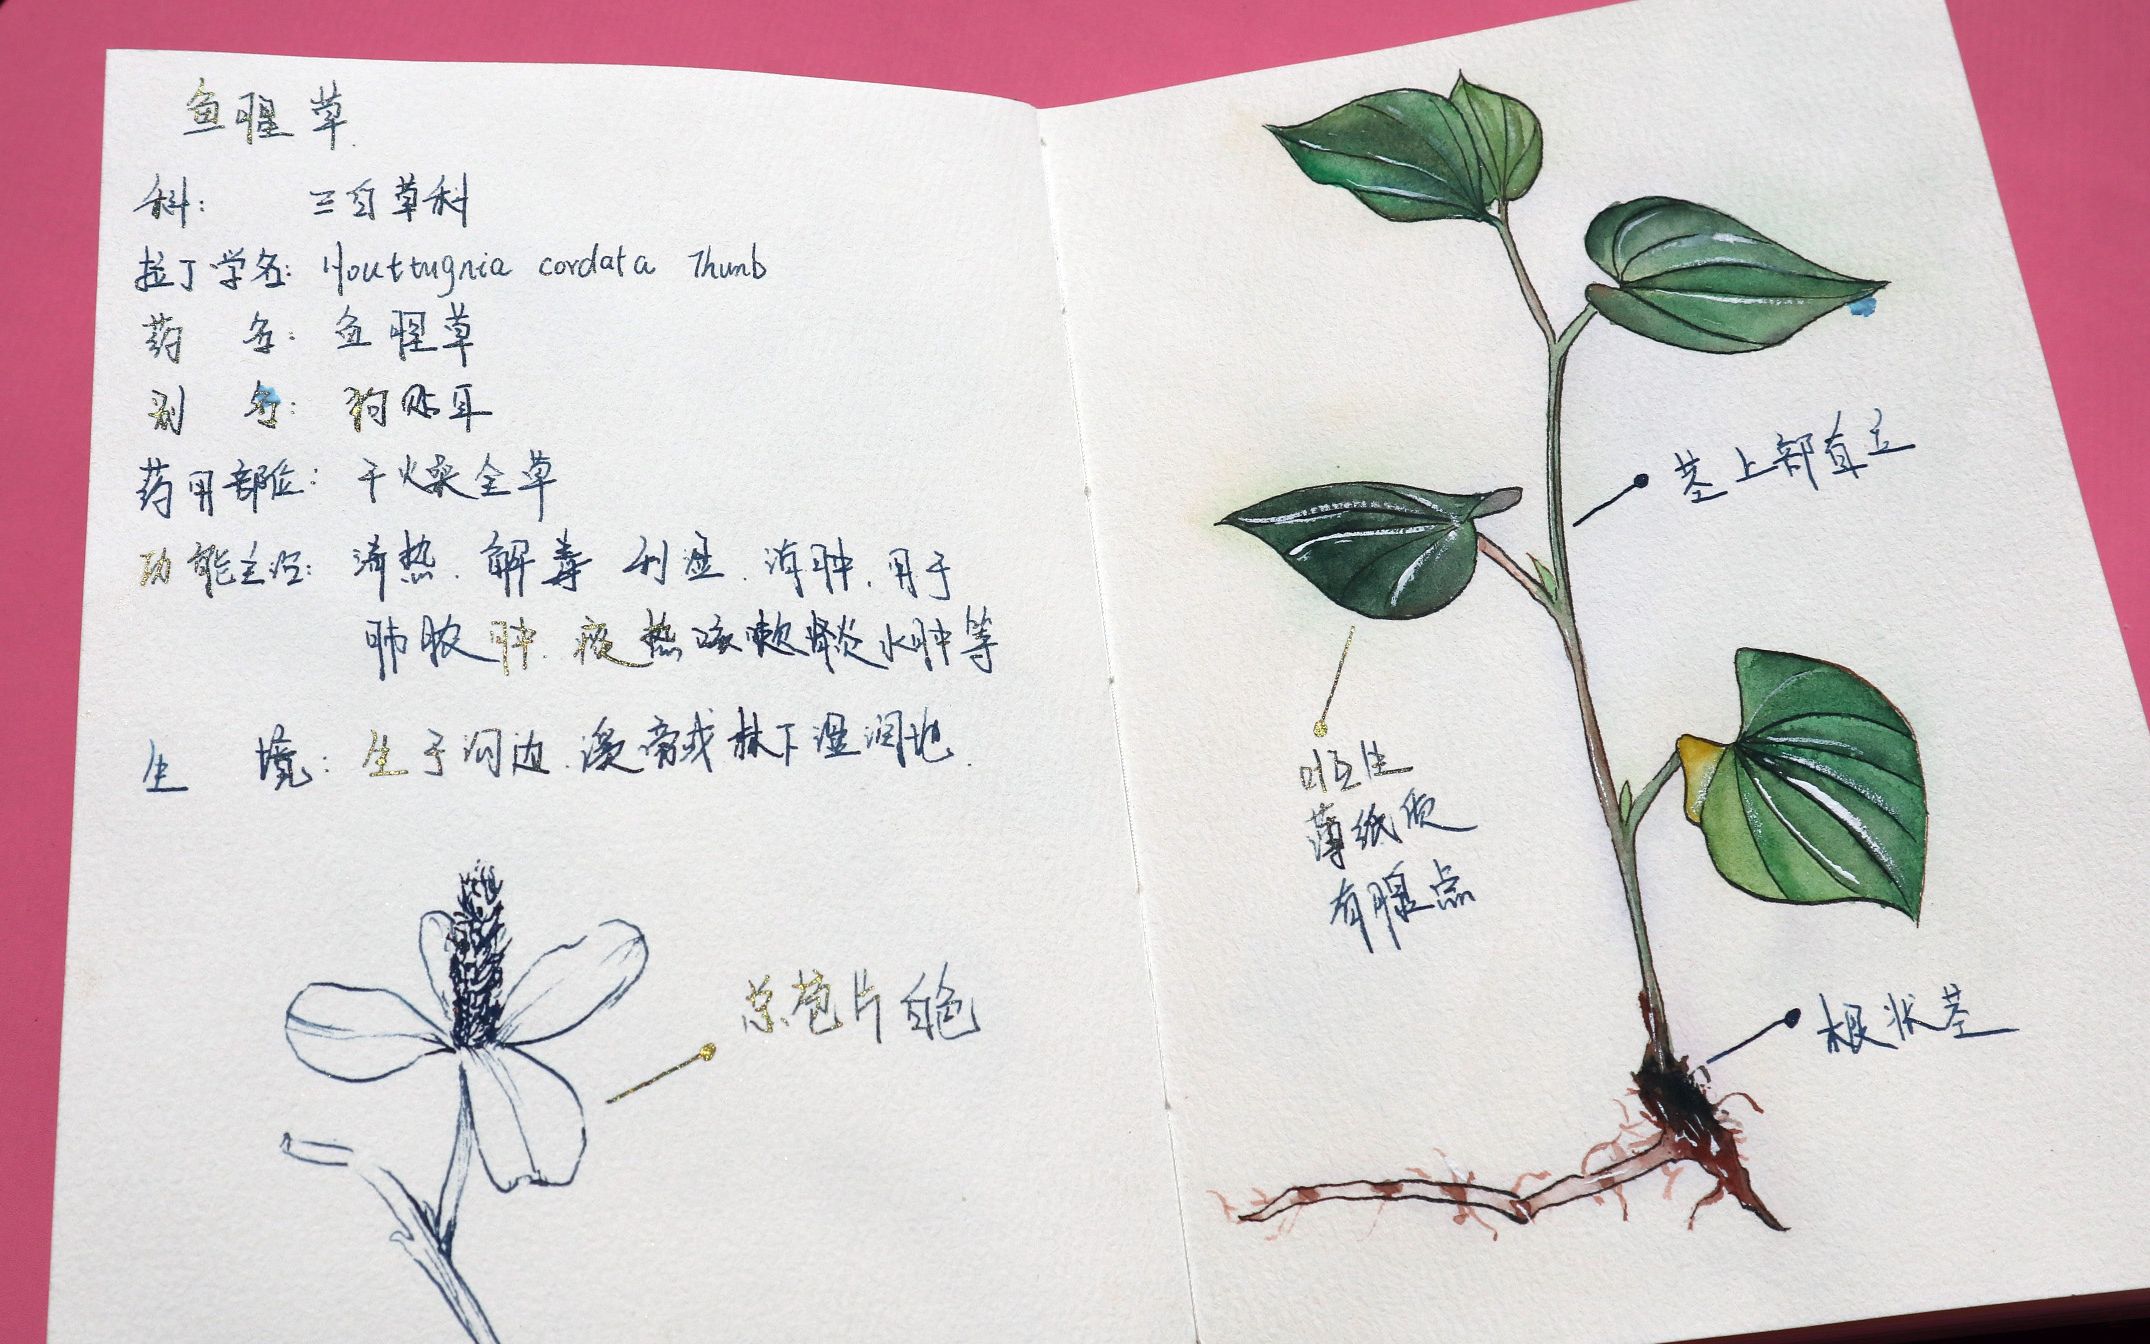 鱼腥草
科: 三白草科
拉丁学名: Houttugnia cordata Thunb
药 名: 鱼腥草
别 名: 狗贴耳
药用部位: 干燥全草
功能主治: 清热.解毒 利湿.消肿.用于
肺脓肿.痰热咳嗽肾炎水肿等
生 境: 生于沟边.溪旁或林下湿润地.
总苞片白色
茎上部直立
互生
薄纸质
有腺点
根状茎